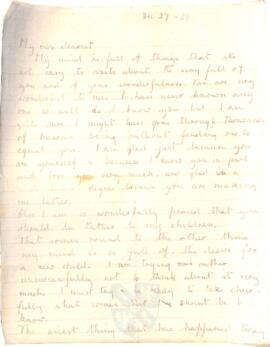 Dec 29 - 29
My own dearest
My mind is full of things that it is
not easy to write about. So very full of
you and of your wonderfulness. You are very
wonderful to me. I have never known any
one so well as I know you but I am
quite sure I might have gone through thousands
of human beings without finding one to
equal you. I am glad just because you
are yourself & because I know you in part
and love you very much, and glad in a
degree because you are making
me better.
Also I am so wonderfully proud that you
should be father to my children.
That comes round to the other thing
my mind is so full of the desire for
a new child. I am trying
not to think about it very
much. I must try & be ready to take cheer-
fully what comes but I shan't be I
know.
The nicest thing that has happened today